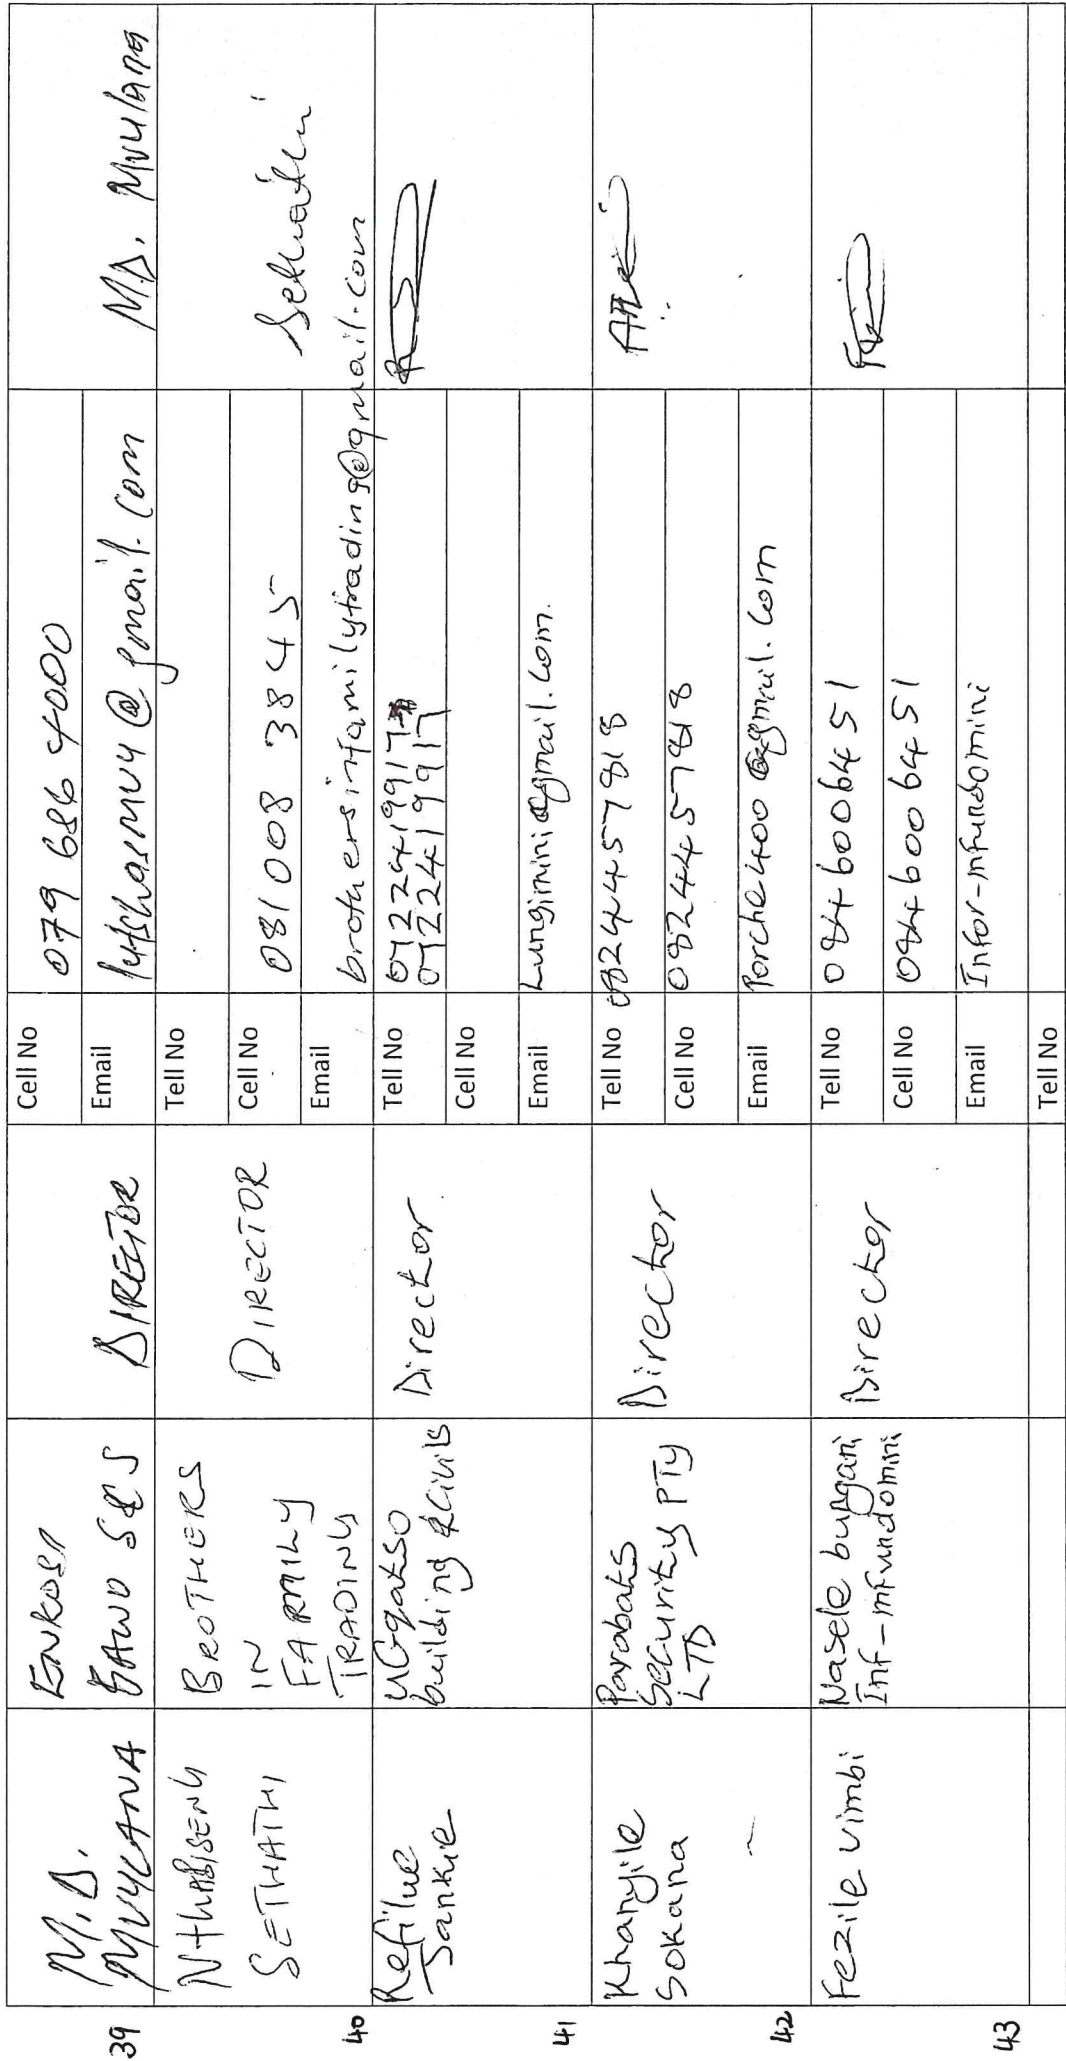 39
M.D.
MVULANA
ENKOSI
BAWO S&S
DIRECTOR
Cell No
079 686 4000
Email
M.D. Mvulana
40
Nthabiseng
SETHATHI
BROTHERS
IN
FAMILY
TRADING
DIRECTOR
Tell No
Cell No
081 008 3845
Email
brothersinfamilytrading@gmail.com
Sethathi
41
Refilwe
Sankie
building & Civils
Director
Tell No
0722419917
0722419917
Cell No
Email
Lungimini@gmail.com.
42
Khanyile
Sokana
Parabaks
Security PTY
LTD
Director
Tell No
0824457818
Cell No
0824457818
Email
Porche400@gmail.com
43
Fezile vimbi
Masele bungani
Inf-mfundomini
Director
Tell No
0846006451
Cell No
0846006451
Email
Infor-mfundomini
Tell No